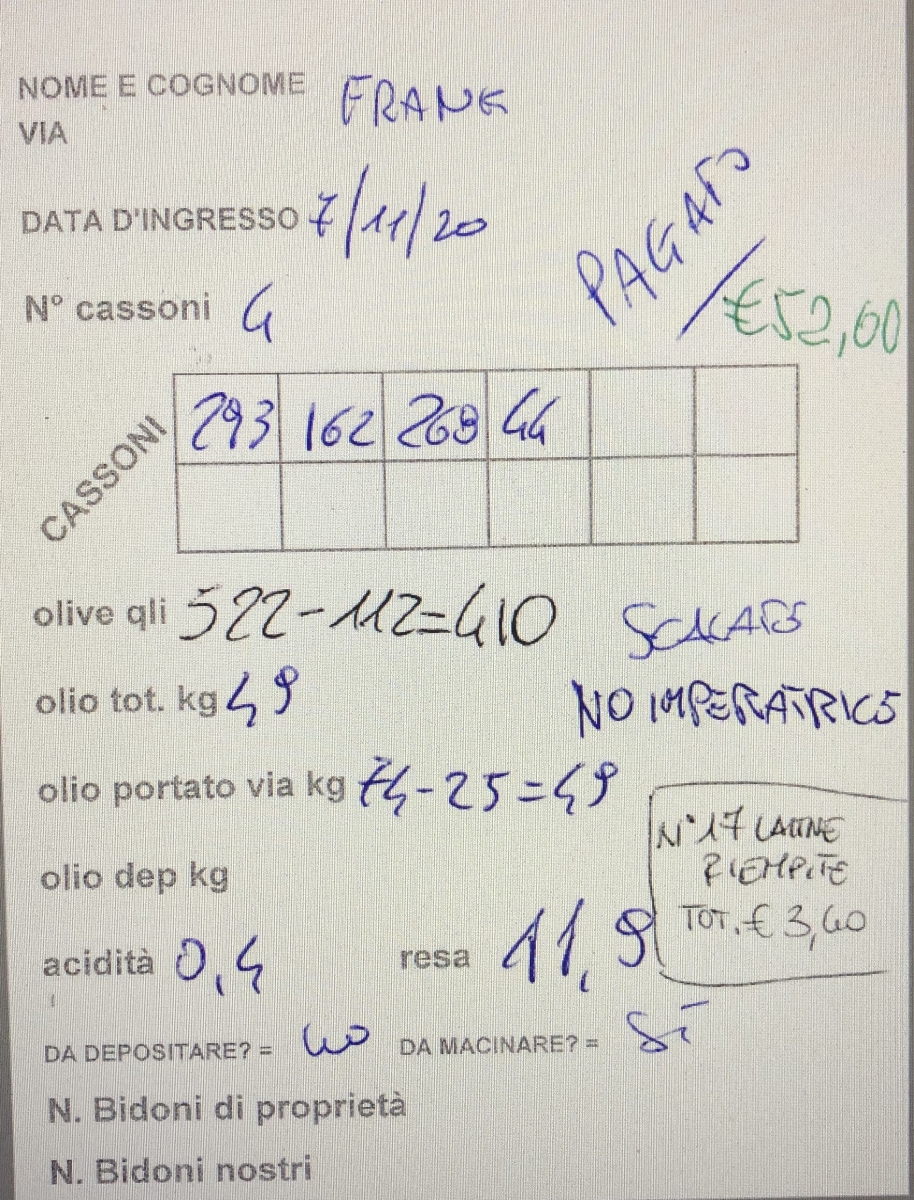 NOME E COGNOME FRANK
VIA
DATA D'INGRESSO 7/11/20
PAGATO / €52,60
N° cassoni 4
CASSONI
293 162 268 44
olive qli 522-112=410
SCACATO
olio tot. kg 49
NO IMPERATRICE
olio portato via kg 74-25=49
N° 17 LATTINE
RIEMPITE
TOT. € 3,40
olio dep kg
acidità 0,4 resa 11,9
DA DEPOSITARE? = NO DA MACINARE? = SI
N. Bidoni di proprietà
N. Bidoni nostri